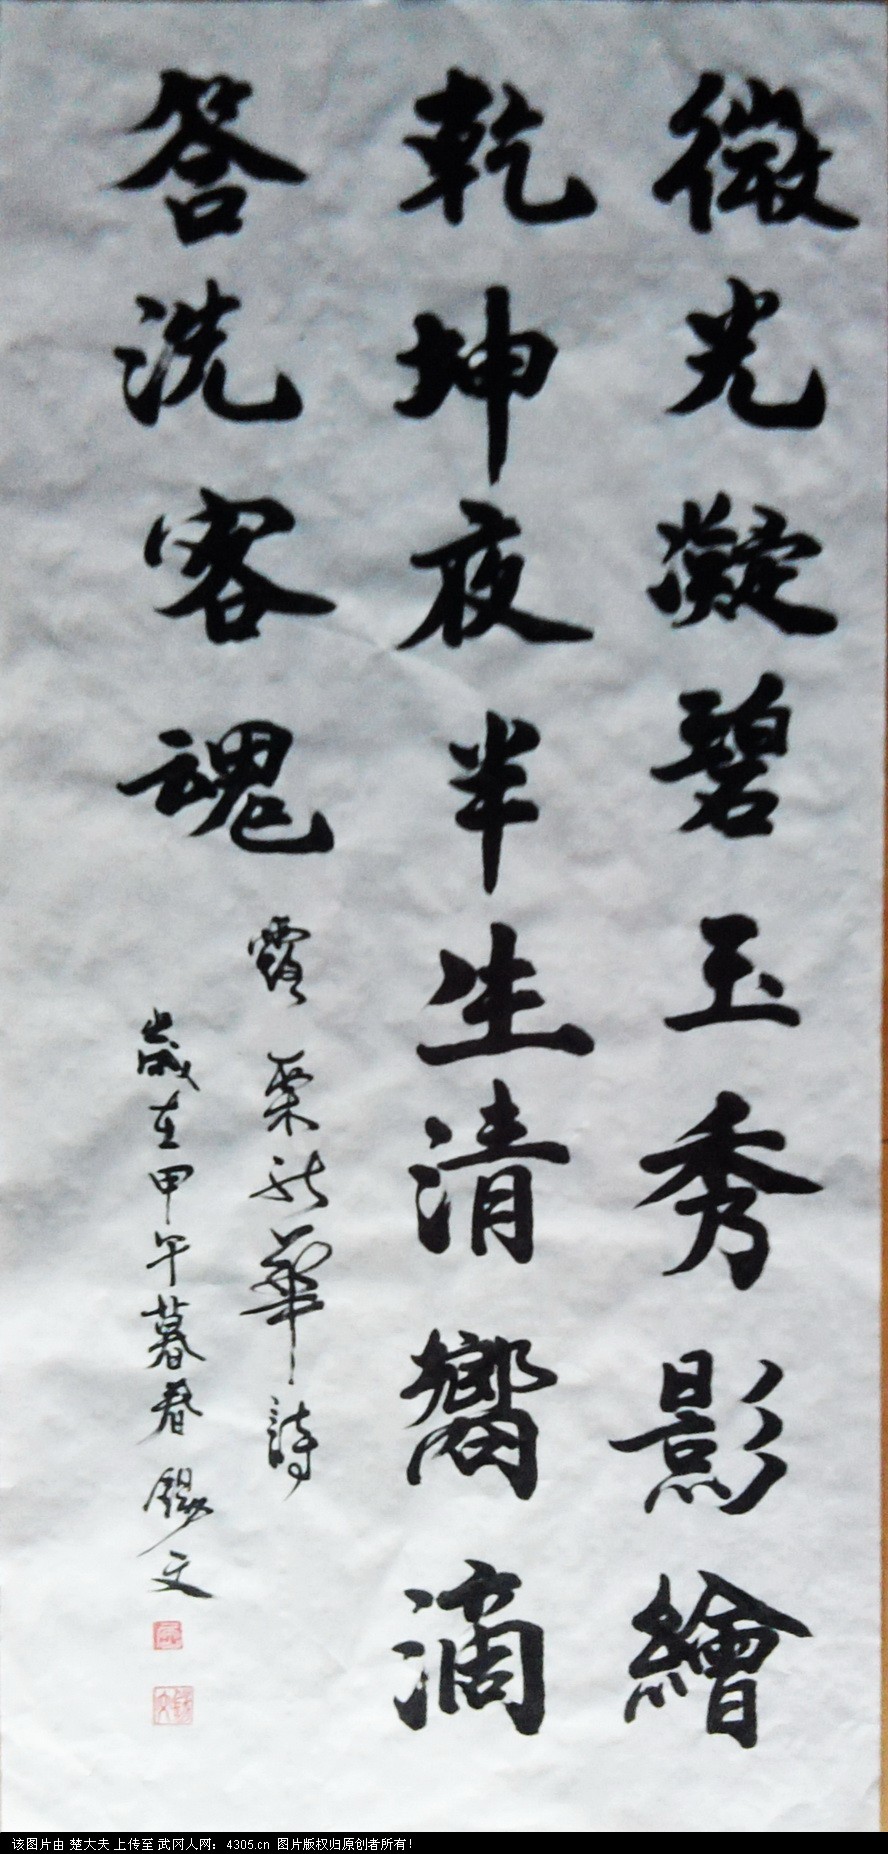 微光凝碧玉秀影繪
乾坤夜半生清響滴
答洗客魂
露 栗新華詩
歲在甲午暮春 錫文
该图片由 楚大夫 上传至 武冈人网：4305.cn 图片版权归原创者所有！